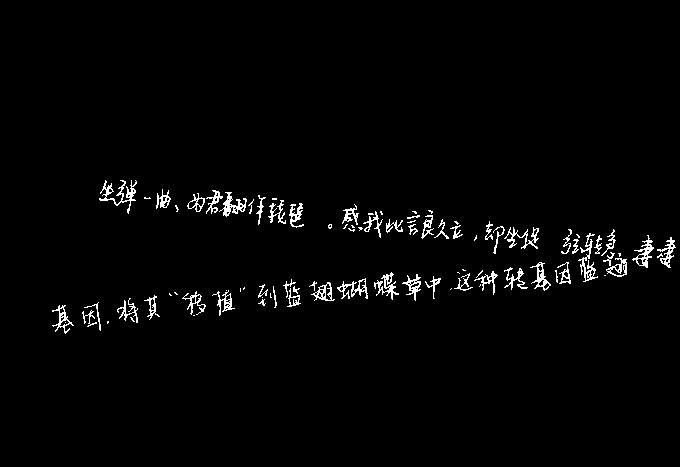 坐弹一曲、为君翻作琵琶。感我此言良久立,却坐促弦转急 妻妻
基因.将其“移植”到蓝翅蝴蝶草中.这种转基因蓝翅